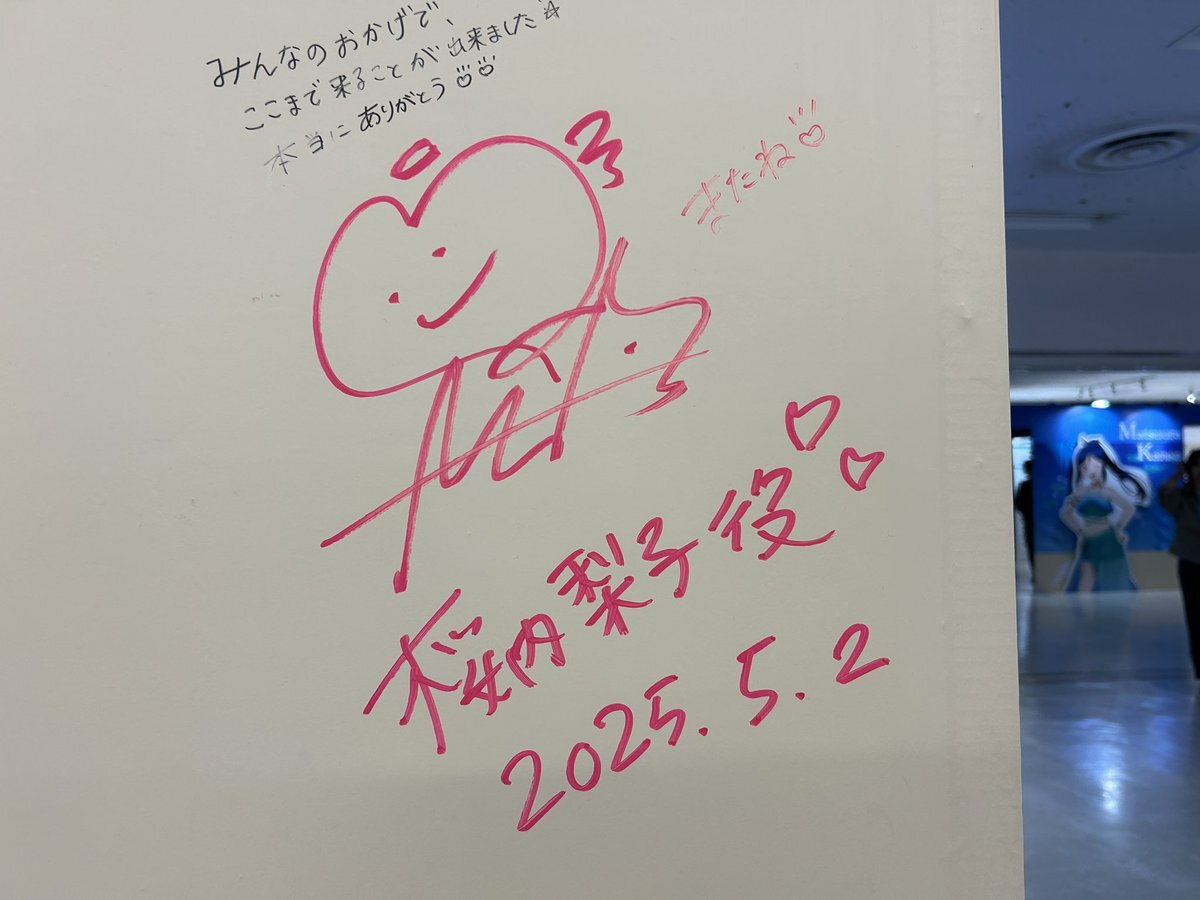 みんなのおかげで、
ここまで来ることが出来ました☆
本当にありがとう♡♡
またね♡
桜内梨子役♡♡
2025.5.2
Matsuura
Kanan